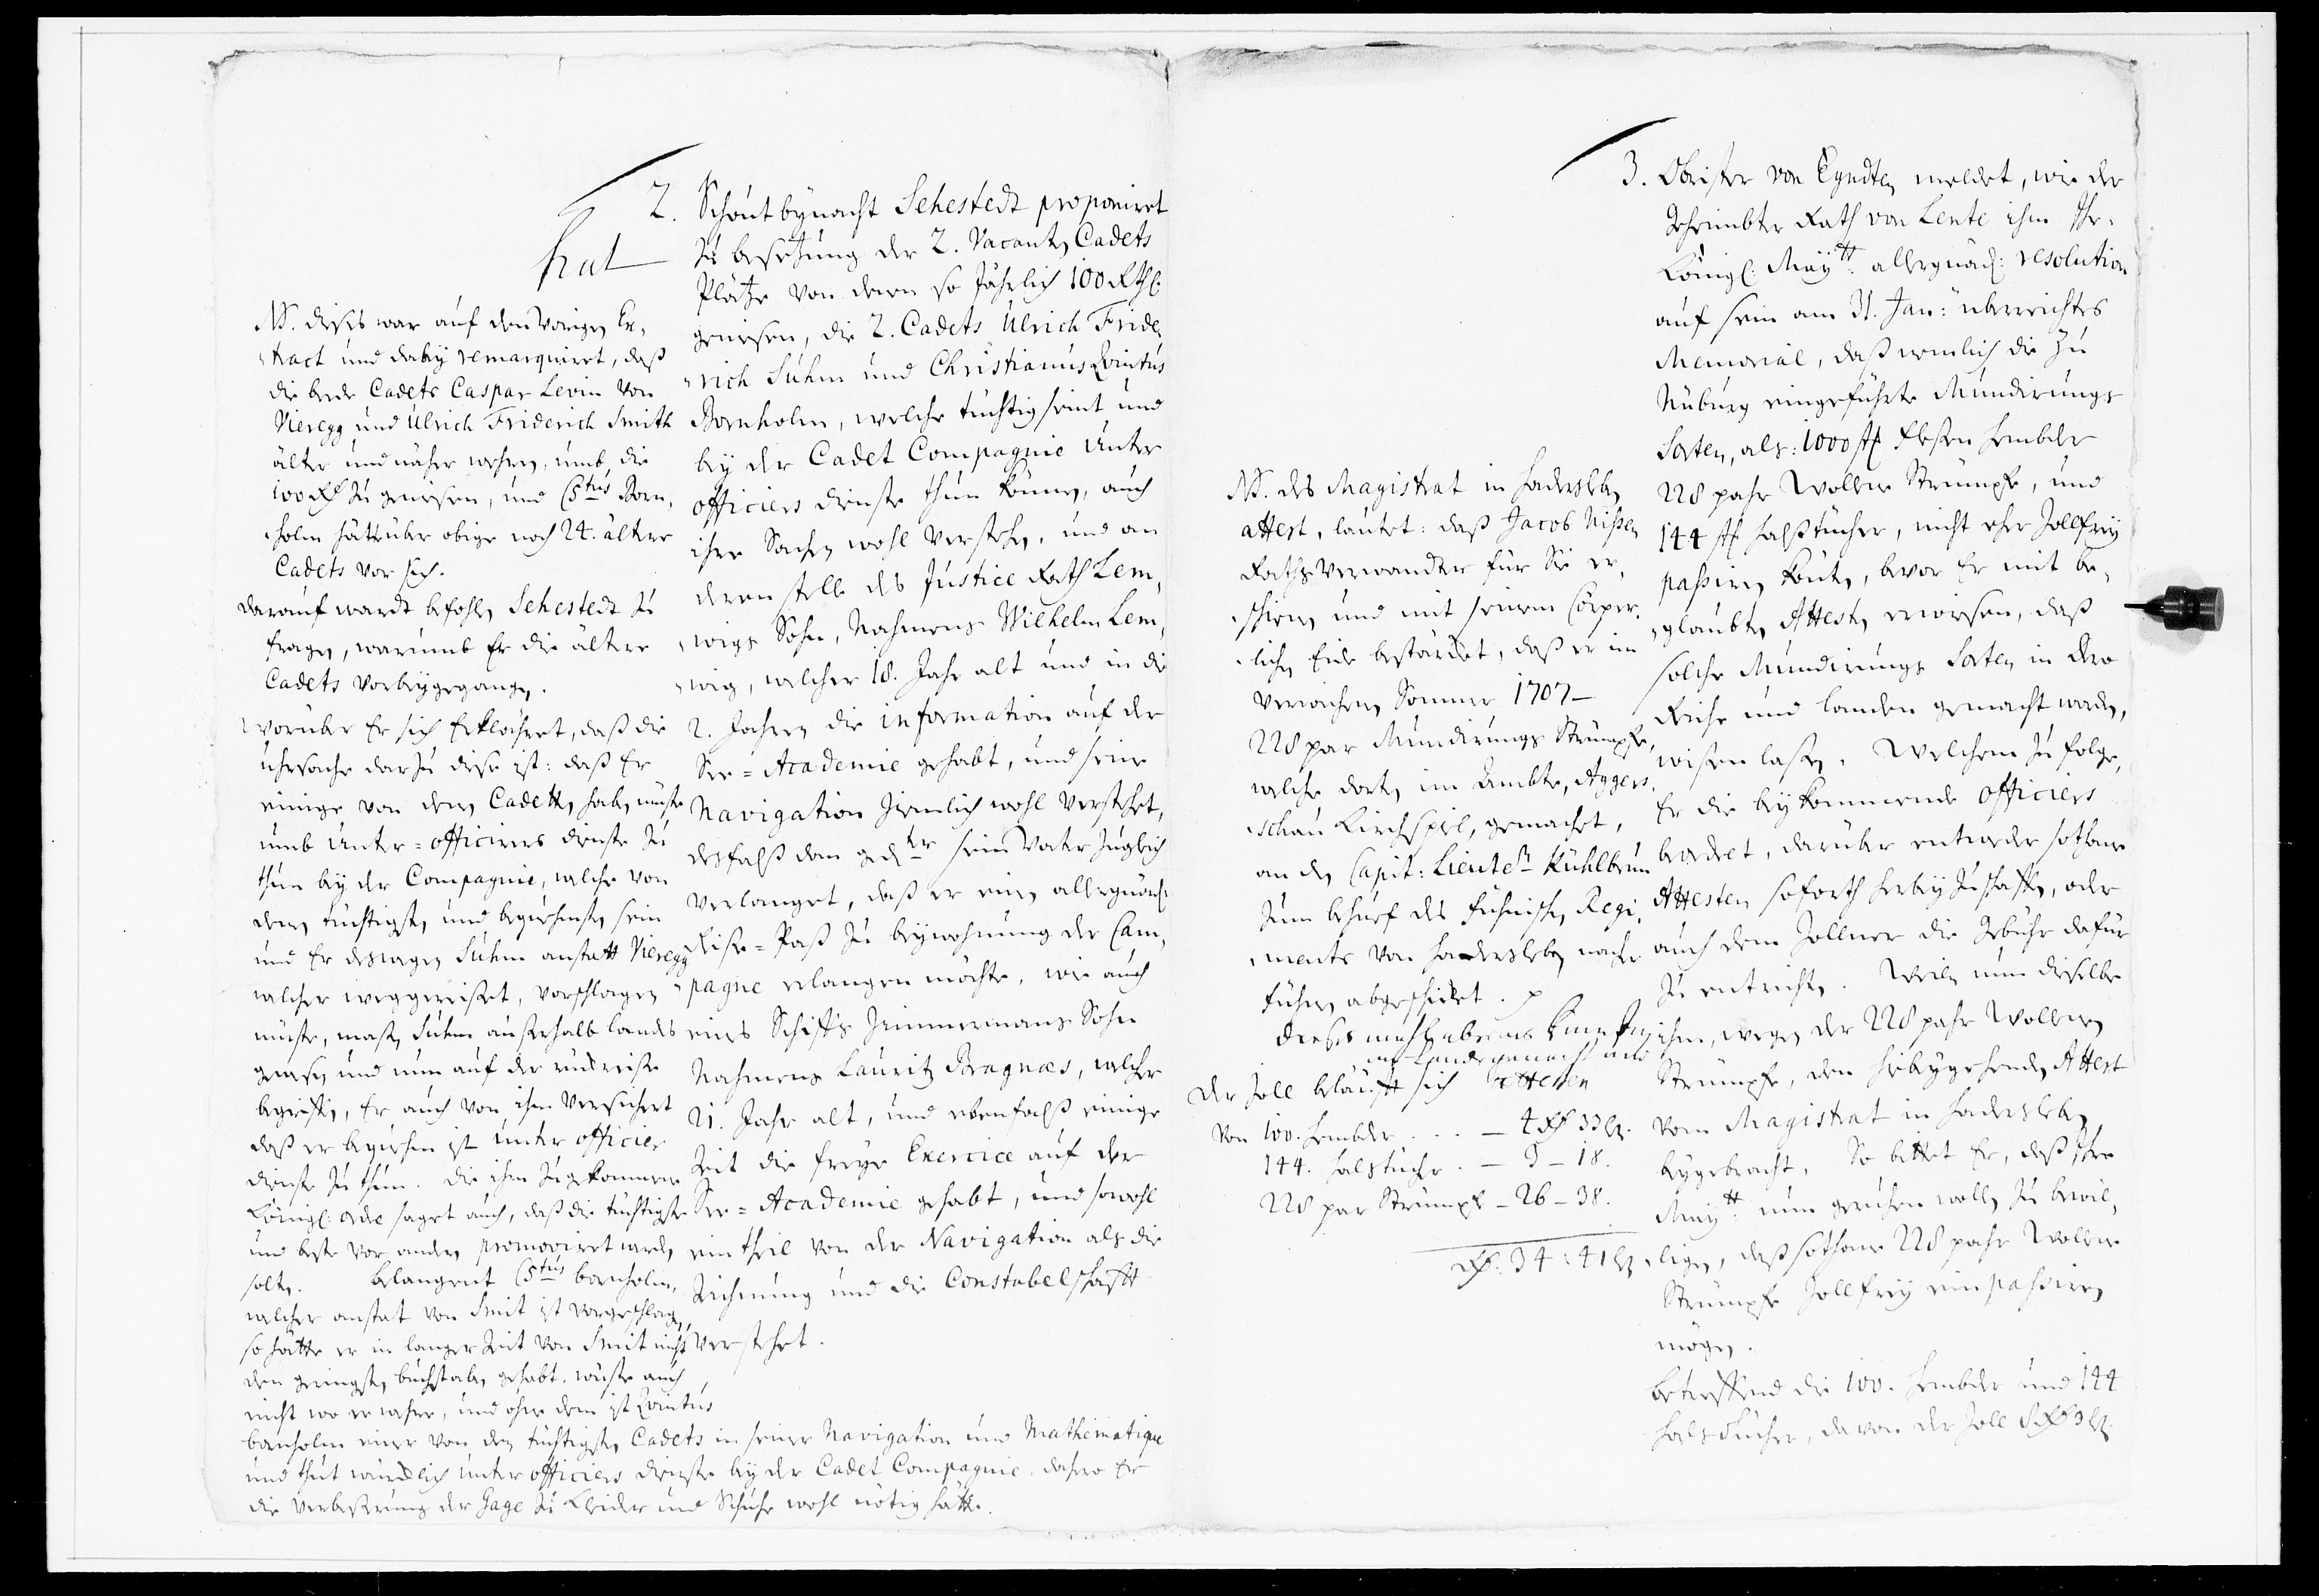 2. Schoutbynacht Sehestedt proponiret
zu besetzung der 2. Vacanten Cadets
Plätze von denen so Jährlich 100 Rthl:
geniesen, die 2. Cadets Ulrich Fride,
rich Suhm und Christianus Qvintus
Bornholm, welche tüchtig seint und
bey der Cadet Compagnie Unter
officiers dienste thun können, auch
ihre Sachen wohl verstehen, und an
deren stelle des Justice Rath Lem,
wigs Sohn, Nahmens Wilhelm Lem,
wig, welcher 18. Jahr alt und in die
2. Jahren die information auf der
See=Academie gehabt, und seine
Navigation ziemlich wohl verstehet,
desfalß dan gedter sein Vater zugleich
verlanget, daß er einen allergnäd:
Reise=Paß zu beywohnung der Cam,
pagne erlangen möchte, wie auch
eines Schiffs Zimmermans Sohn
Nahmens Lauritz Bragnæs, welcher
21. Jahr alt, und ebenfalß einige
Zeit die freye Exercice auf der
See=Academie gehabt, und sowohl
ein theil von der Navigation als die
Zeichnung und die Constabelschafft
verstehet.
hat
NB. dieses war auf dem vorigen Ex,
tract und dabey remarquiret, daß
die beede Cadets Caspar Levin von
Vieregg und Ulrich Friderich Smith
älter und näher wehren, umb die
100 Rthl zu geniesen, und Qtus Born,
holm hätte über obige noch 24. ältere
Cadets vor sich.
darauf wardt befohlen Sehestedt zu
fragen, warumb Er die ältere
Cadets vorbeygegangen.
Worüber Er sich Erklähret, daß die
uhrsache darzu diese ist: daß Er
einige von denen Cadetten haben müste
umb Unter=officiers dienste zu
thun bey der Compagnie, welche von
denen tüchtigsten und beqvehmsten sein
und Er deswegen Suhm anstatt Vieregg
welcher weggereiset, vorschlagen
müste, maßen Suhm außerhalb landes
gewesen und nun auf der rückreise
begriffen, Er auch von ihm versichert
daß er beqvehm ist unter officier
dienste zu thun. die ihm zugekommene
Königl: ordre saget auch, daß die tüchtigste
und beste vor andern promoviret werden
solten. Belangent Qtus bornholm,
welcher anstat von Smit ist vorgeschlagen,
so hätte er in langer Zeit von Smit nicht
den geringsten buchstaben gehabt, wüste auch
nicht wo er wehre, und ohne dem ist Qvintus
bornholm einer von den tüchtigsten Cadets in seiner Navigation und Mathematique
und thut würcklich unter officiers dienste bey der Cadet Compagnie, dahero Er
die verbeßerung der Gage zu Kleider und Schuhe wohl nötig hätte.
3. Obrister von Eyndten meldet, wie der
Geheimbter Rath von Lente ihm Ihr.
Königl: Maytt: allergnäd: resolution
auf sein am 31. Jan: überreichtes
Memorial, daß nemlich die zu
Nüburg eingeführte Mundirungs
Sorten, als: 1000 st Hembder
228 pahr Wollene Strümpfe, und
144 st Halßtücher, nicht eher Zollfrey
passiren könten, bevor Er mit be,
glaubten Attesten erwiesen, daß
solche Mundirungs Sorten in Dero
Reiche und landen gemacht worden,
wißen laßen. Welchem zu folge,
Er die beykommende officiers
beordret, darüber entweder sothane
Attesten soforth herbey zu schaffen, oder
auch dem Zollner die Gebühr dafür
zu entrichten. Weilen nun dieselbe
ihm, wegen der 228 pahr Wollenen
Strümpfe, den hiebeygehenden Attest
vom Magistrat in Hadersleben
beygebracht, So bittet Er, daß Ihro
Maytt: nun geruhen wollen zu bewil,
ligen, daß sothane 228 pahr Wollene
Strümpfe Zollfrey einpassiren
mögen.
Betreffend die 100. Hembder und 144
Halstücher, davon der Zoll 8 Rthl 3 ß.
NB. des Magistrat in Hadersleben
attest, lautet: daß Jacob Nißen
Rathsverwandter für Sie er,
schienen und mit seinem Cörper,
lichen Eide bestärcket, daß er im
verwichenen Sommer 1707
228 par Mundirungs Strümpfe,
welche dort, im Ambte, Aggers,
schau Kirchspiel, gemachet,
an den Capit: Lieutent Kühlbrun
zum behuef des fühnischen Regi,
ments von Hadersleben nacher
fühnen abgeschicket.
dieses
im Lande gemacht
Attesten
Der Zoll beläufft sich
von 100. Hembder . . . — 4 Rthl 33 ß.
144. halstücher . — 3 — 18.
228 par Strümpfe — 26 — 38.
Rthl: 34 : 41 ß